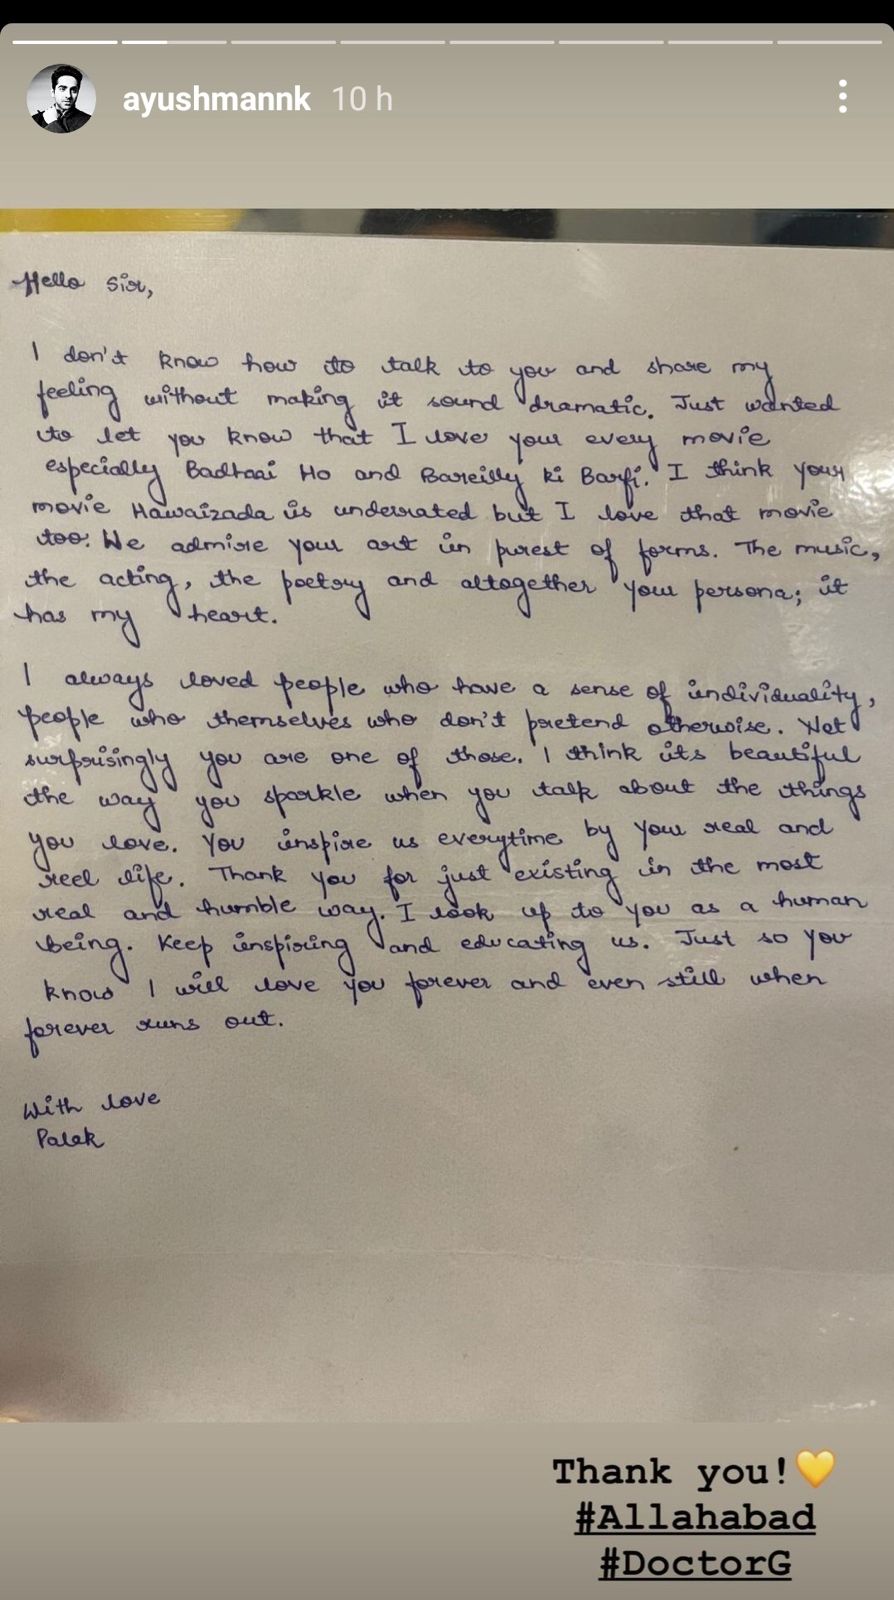 ayushmannk 10 h
Hello Sir,
I don't know how to talk to you and share my
feeling without making it sound dramatic. Just wanted
to let you know that I love your every movie
especially Badhaai Ho and Bareilly ki Barfi. I think your
movie Hawaizada is underrated but I love that movie
too. We admire your art in purest of forms. The music,
the acting, the poetry and altogether your persona; it
has my heart.
I always loved people who have a sense of individuality,
people who themselves who don't pretend otherwise. Not
surprisingly you are one of those. I think its beautiful
the way you sparkle when you talk about the things
you love. You inspire us everytime by your real and
reel life. Thank you for just existing in the most
real and humble way. I look up to you as a human
being. Keep inspiring and educating us. Just so you
know I will love you forever and even still when
forever runs out.
With love
Palak
Thank you!💛
#Allahabad
#DoctorG